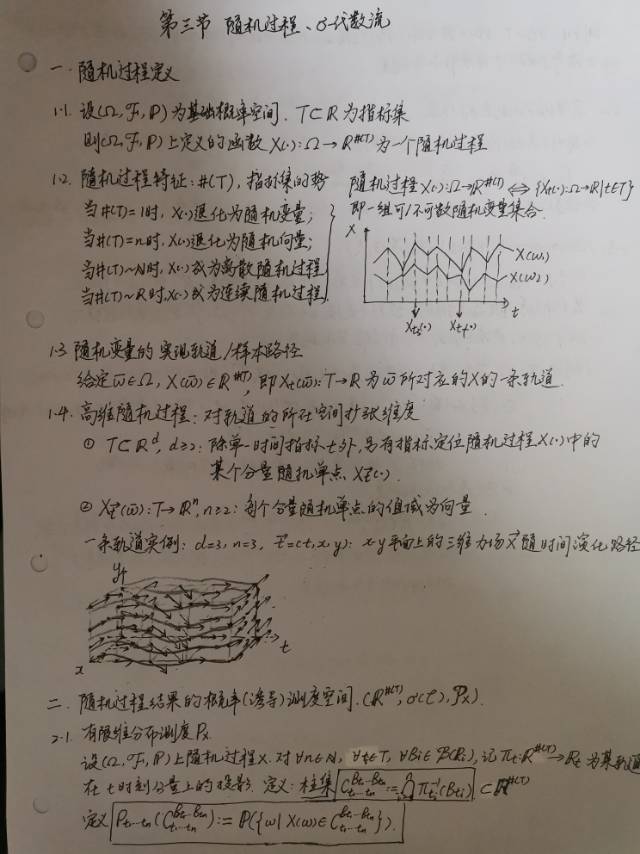 第三节 随机过程、σ-代数流
一. 随机过程定义
1.1. 设(Ω, F, P)为基础概率空间. T⊂R为指标集
则(Ω, F, P)上定义的函数 X(·): Ω → R^#(T) 为一个随机过程
1.2. 随机过程特征: #(T), 指标集的势
当#(T)=1时, X(·)退化为随机变量;
当#(T)=n时, X(·)退化为随机向量;
当#(T)~N时, X(·)成为离散随机过程
当#(T)~R时, X(·)成为连续随机过程
随机过程X(·): Ω→R^#(T) ⇔ {X_t(·): Ω→R | t∈T}
即一组可/不可数随机变量集合.
X
X(ω₁)
X(ω₂)
t
X_t₁(·) X_t₂(·)
1.3 随机变量的实现轨道/样本路径
给定ω̄∈Ω, X(ω̄)∈R^#(T), 即X_t(ω̄): T→R为ω̄所对应的X的一条轨道.
1.4. 高维随机过程: 对轨道的所在空间扩张维度
① T⊂R^d, d≥2: 除单一时间指标t外, 另有指标定位随机过程X(·)中的
某个分量随机单点 X_t⃗(·).
② X_t⃗(ω̄): T→R^n, n≥2: 每个分量随机单点的值域为向量.
一条轨道实例: d=3, n=3, t⃗=(t,x,y): x-y平面上的三维力场X⃗随时间演化路径
y
t
x
二. 随机过程结果的概率(诱导)测度空间. (R^#(T), σ(C), P_X)
2.1. 有限维分布测度P_X
设(Ω, F, P)上随机过程X. 对∀n∈N, ∀t_i∈T, ∀B_i∈B(R_i), 记π_t: R^#(T)→R_t 为某轨道
在t时刻分量上的投影. 定义: 柱集 C_{t₁…tₙ}^{B_{t₁}…B_{tₙ}} := ⋂_{i=1}^n π_{t_i}^{-1}(B_{t_i}) ⊂ R^#(T)
定义 P_{t₁…tₙ}(C_{t₁…tₙ}^{B_{t₁}…B_{tₙ}}) := P({ω | X(ω)∈C_{t₁…tₙ}^{B_{t₁}…B_{tₙ}}}).